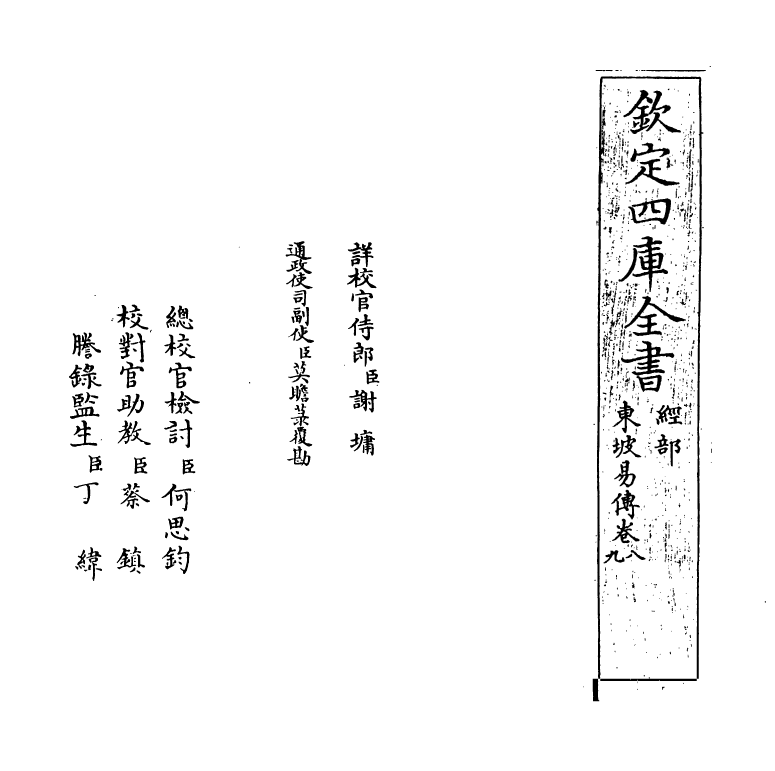 欽定四庫全書
經部
東坡易傳卷八九
詳校官侍郎臣謝墉
通政使司副使臣莫瞻菉覆勘
總校官檢討臣何思鈞
校對官助教臣蔡鎮
謄錄監生臣丁緯